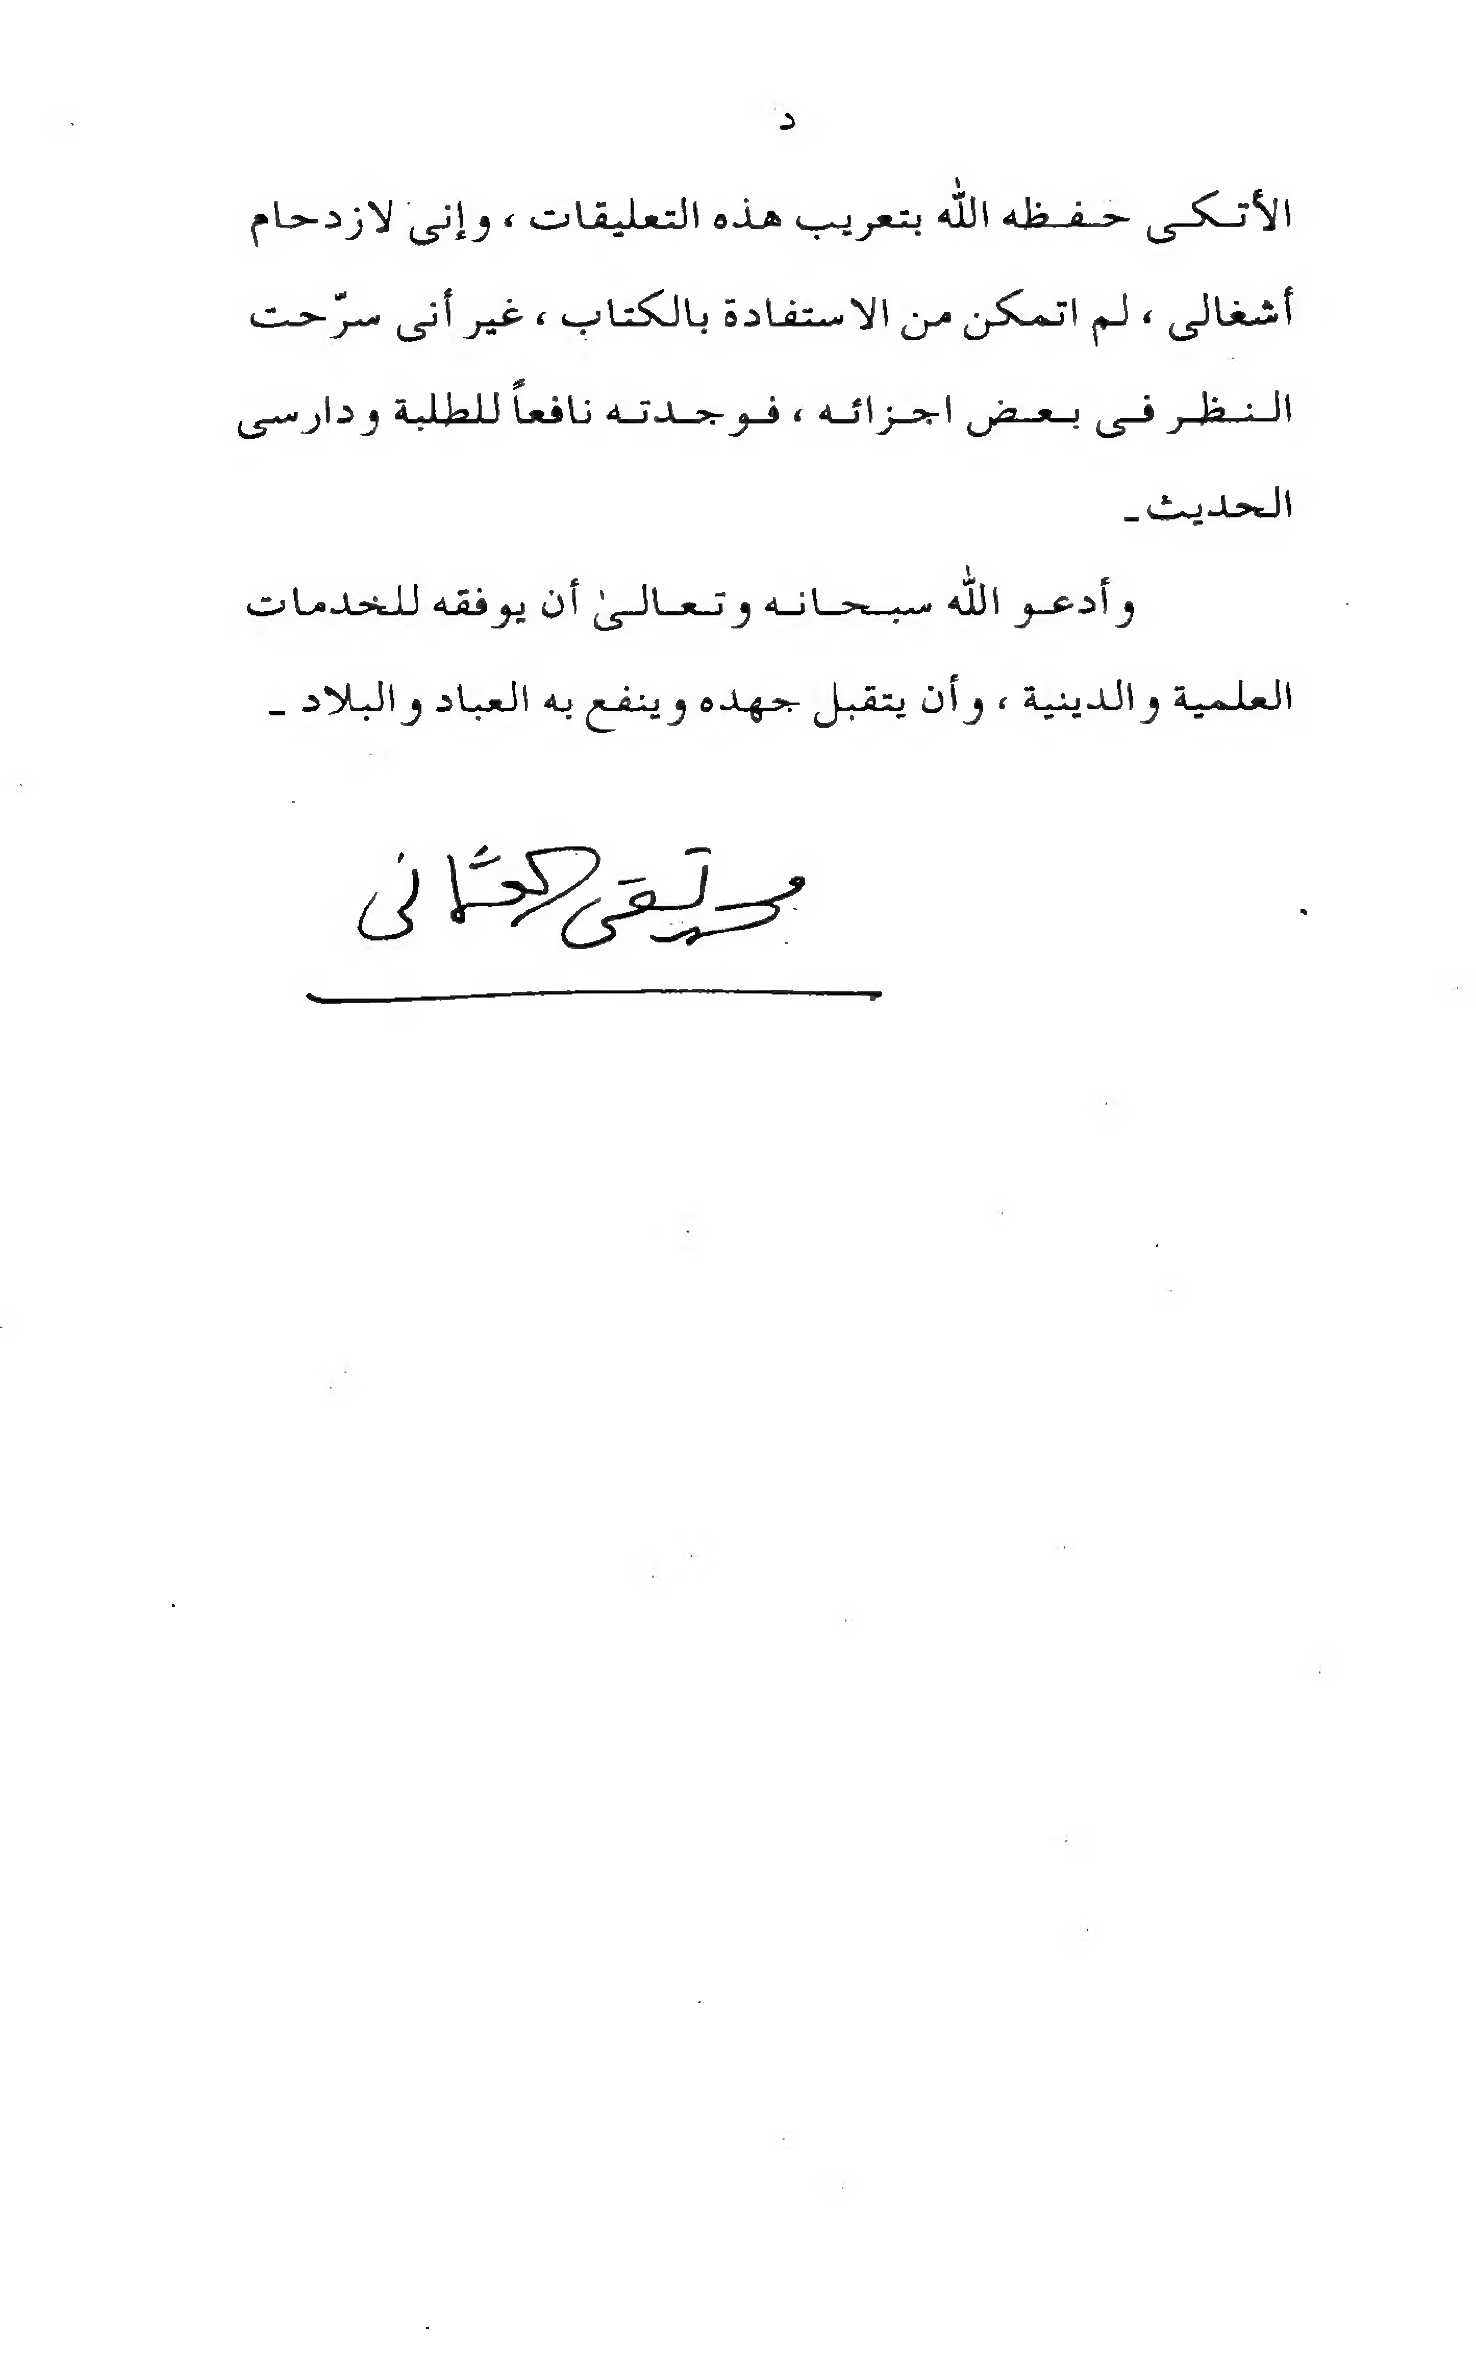 د
الأتكى حفظه الله بتعريب هذه التعليقات ، وإنى لازدحام
أشغالى ، لم اتمكن من الاستفادة بالكتاب ، غير أنى سرّحت
النظر فى بعض اجزائه ، فوجدته نافعاً للطلبة ودارسى
الحديث ـ
وأدعو الله سبحانه وتعالىٰ أن يوفقه للخدمات
العلمية والدينية ، وأن يتقبل جهده وينفع به العباد والبلاد ـ
محمد تقى العثمانى